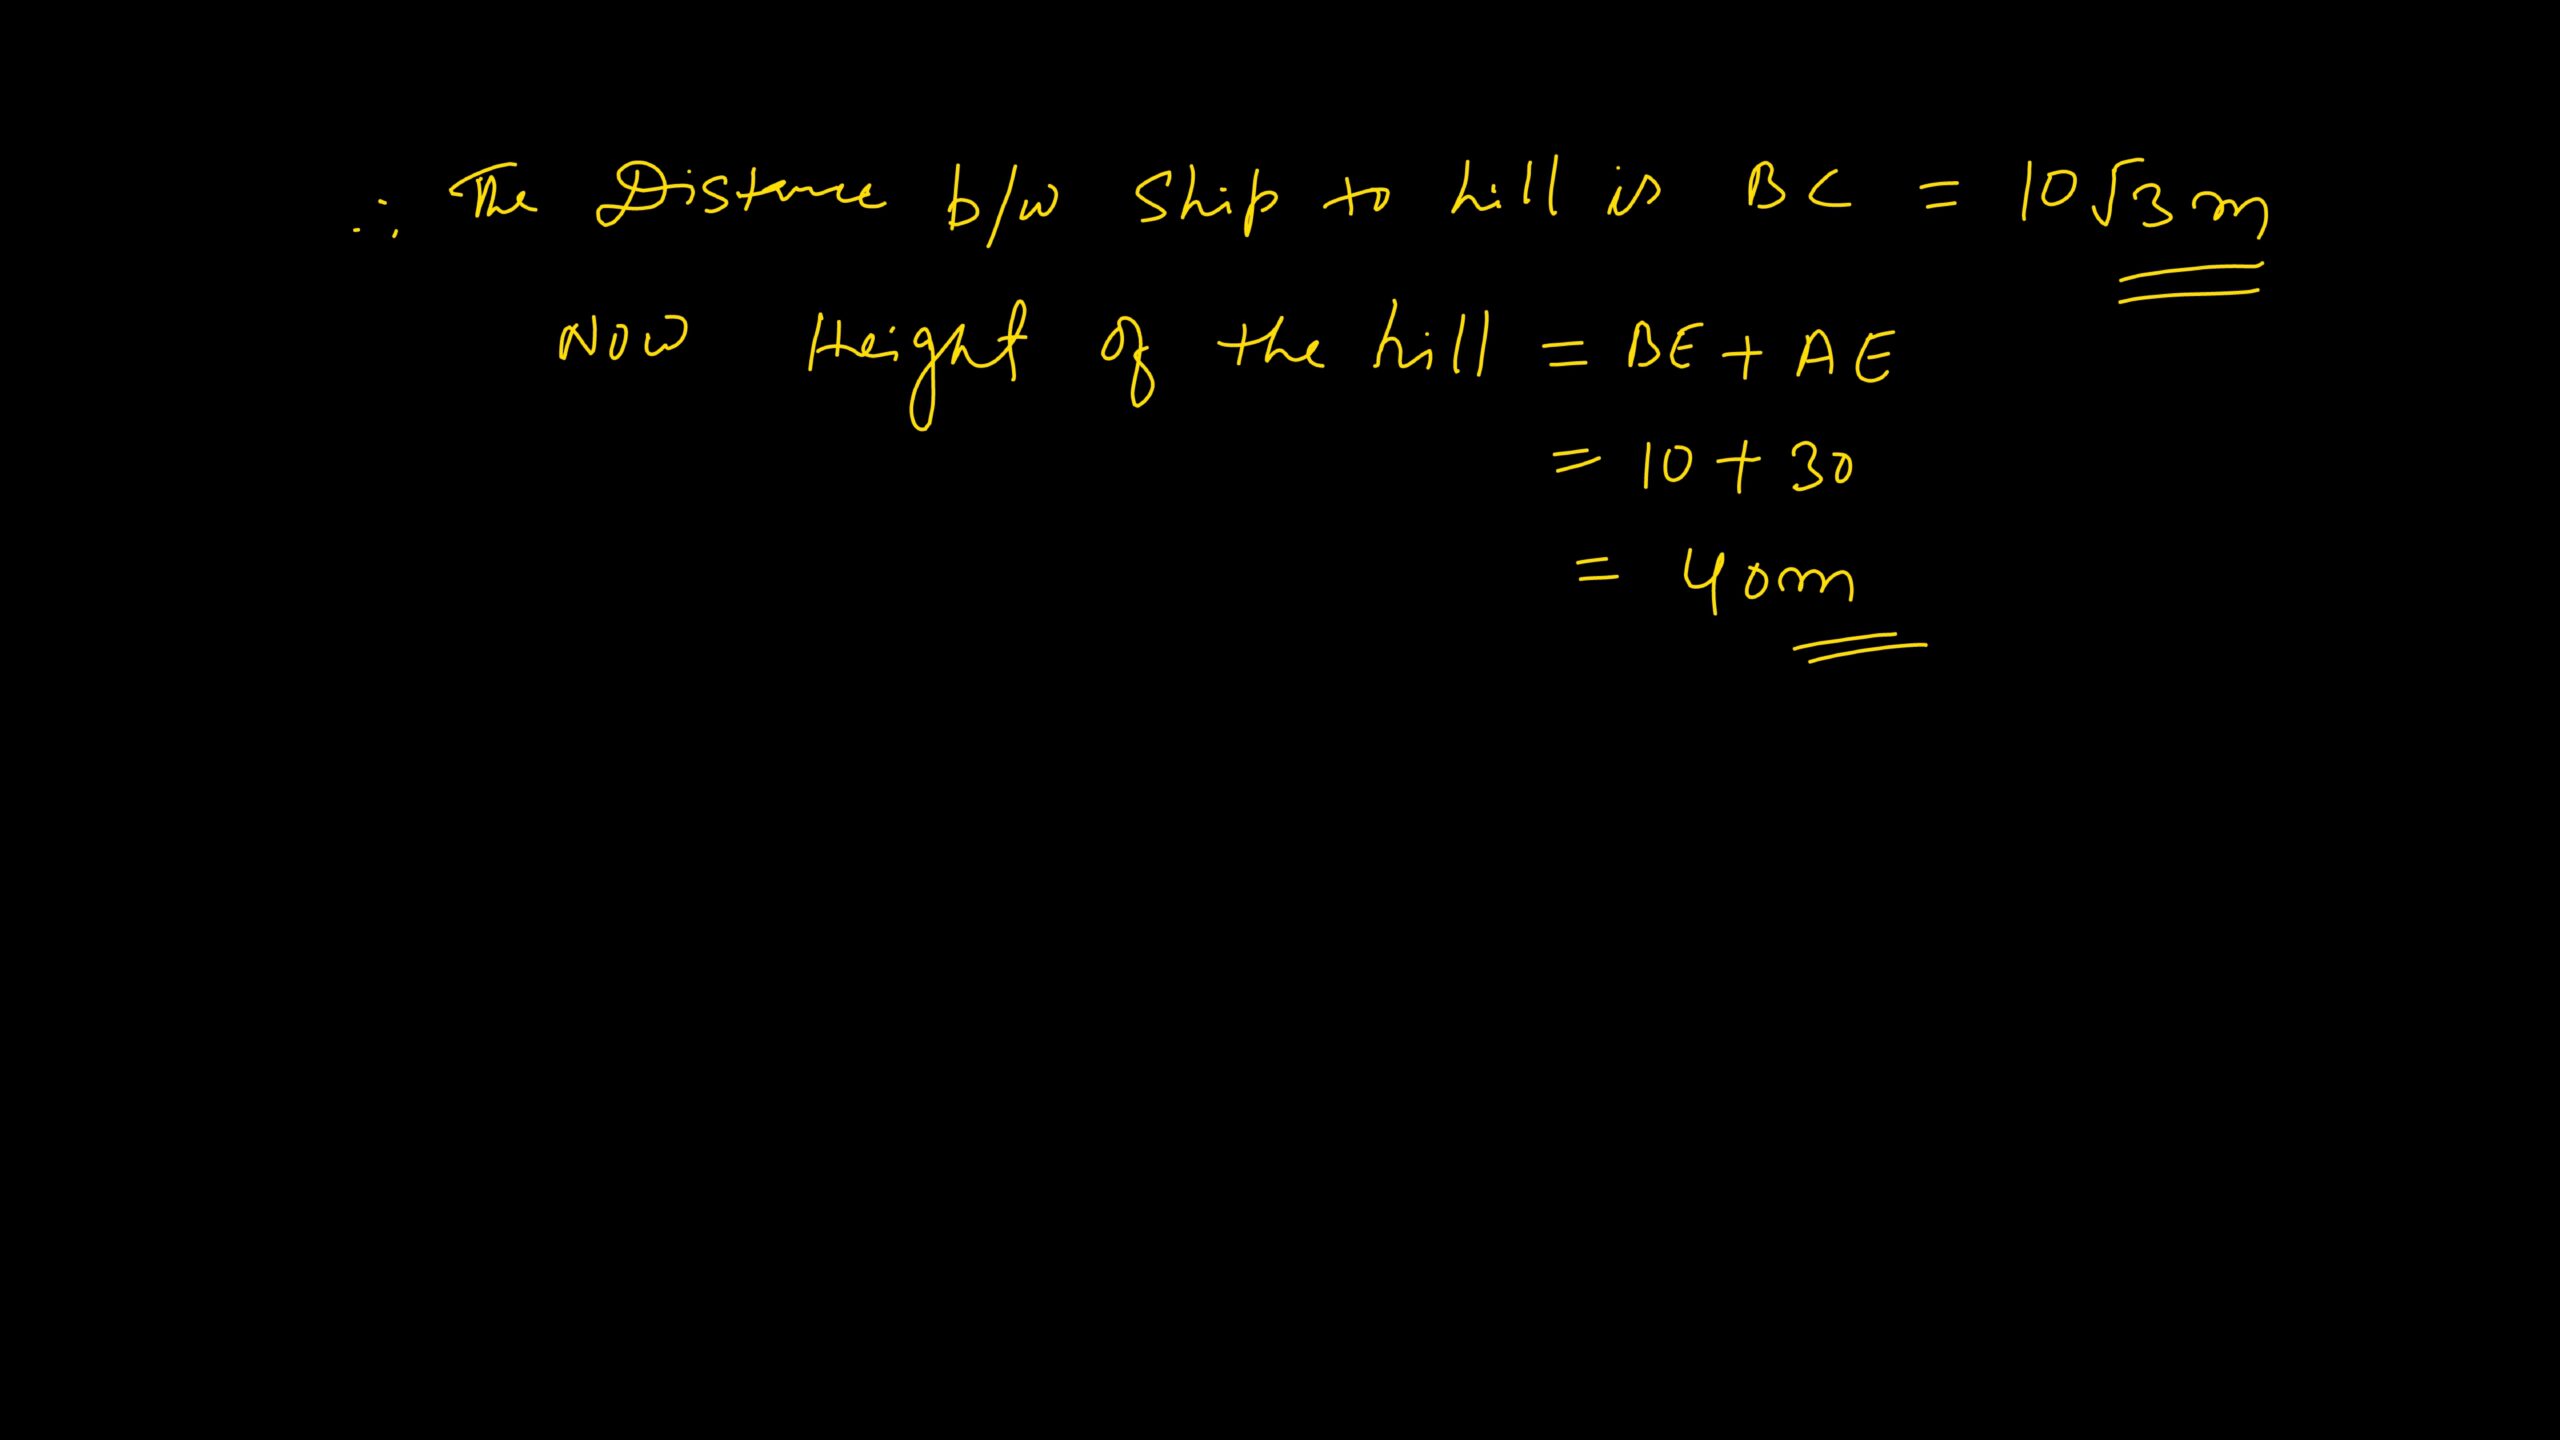 ∴ The Distance b/w Ship to hill is BC = 10√3 m
Now Height of the hill = BE + AE
= 10 + 30
= 40m